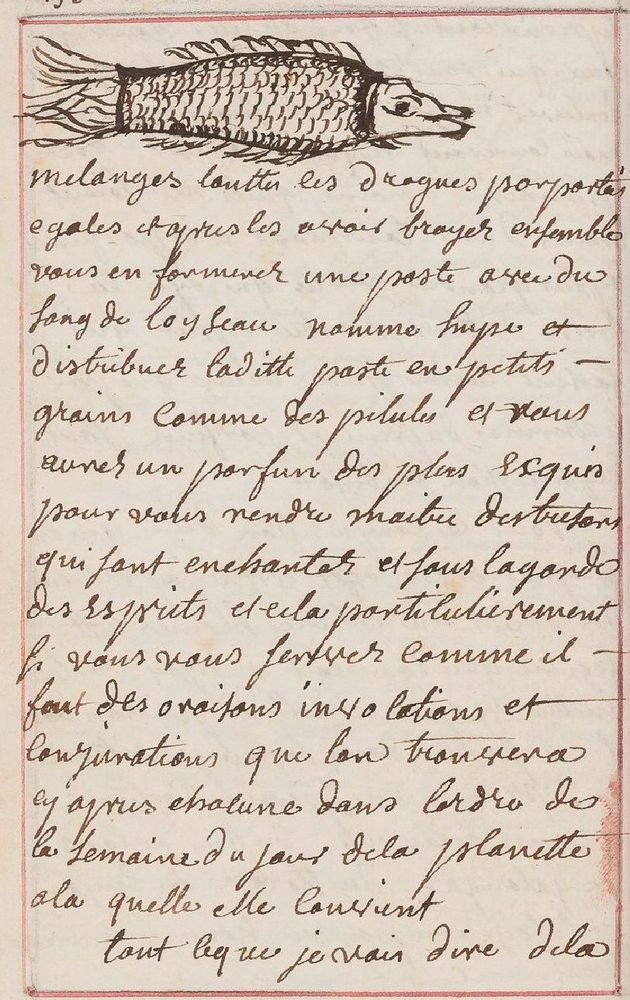 melanges touttes les drogues par parties
egales et apres les avoir broyez ensemble
vous en formerez une paste avec du
sang de loyseau nomme hupe et
distribuez laditte paste en petits
grains comme des pilules et vous
aurez un parfun des plus Exquis
pour vous rendre maitre des tresors
qui sont enchantez et sous la garde
des Esprits et cela partilulierement
si vous vous servez comme il
faut des oraisons invocations et
Conjurations que lon trouvera
cy apres chacune dans lordre de
la semaine du jour dela planette
ala quelle elle convient
tout ceque je vais dire dela